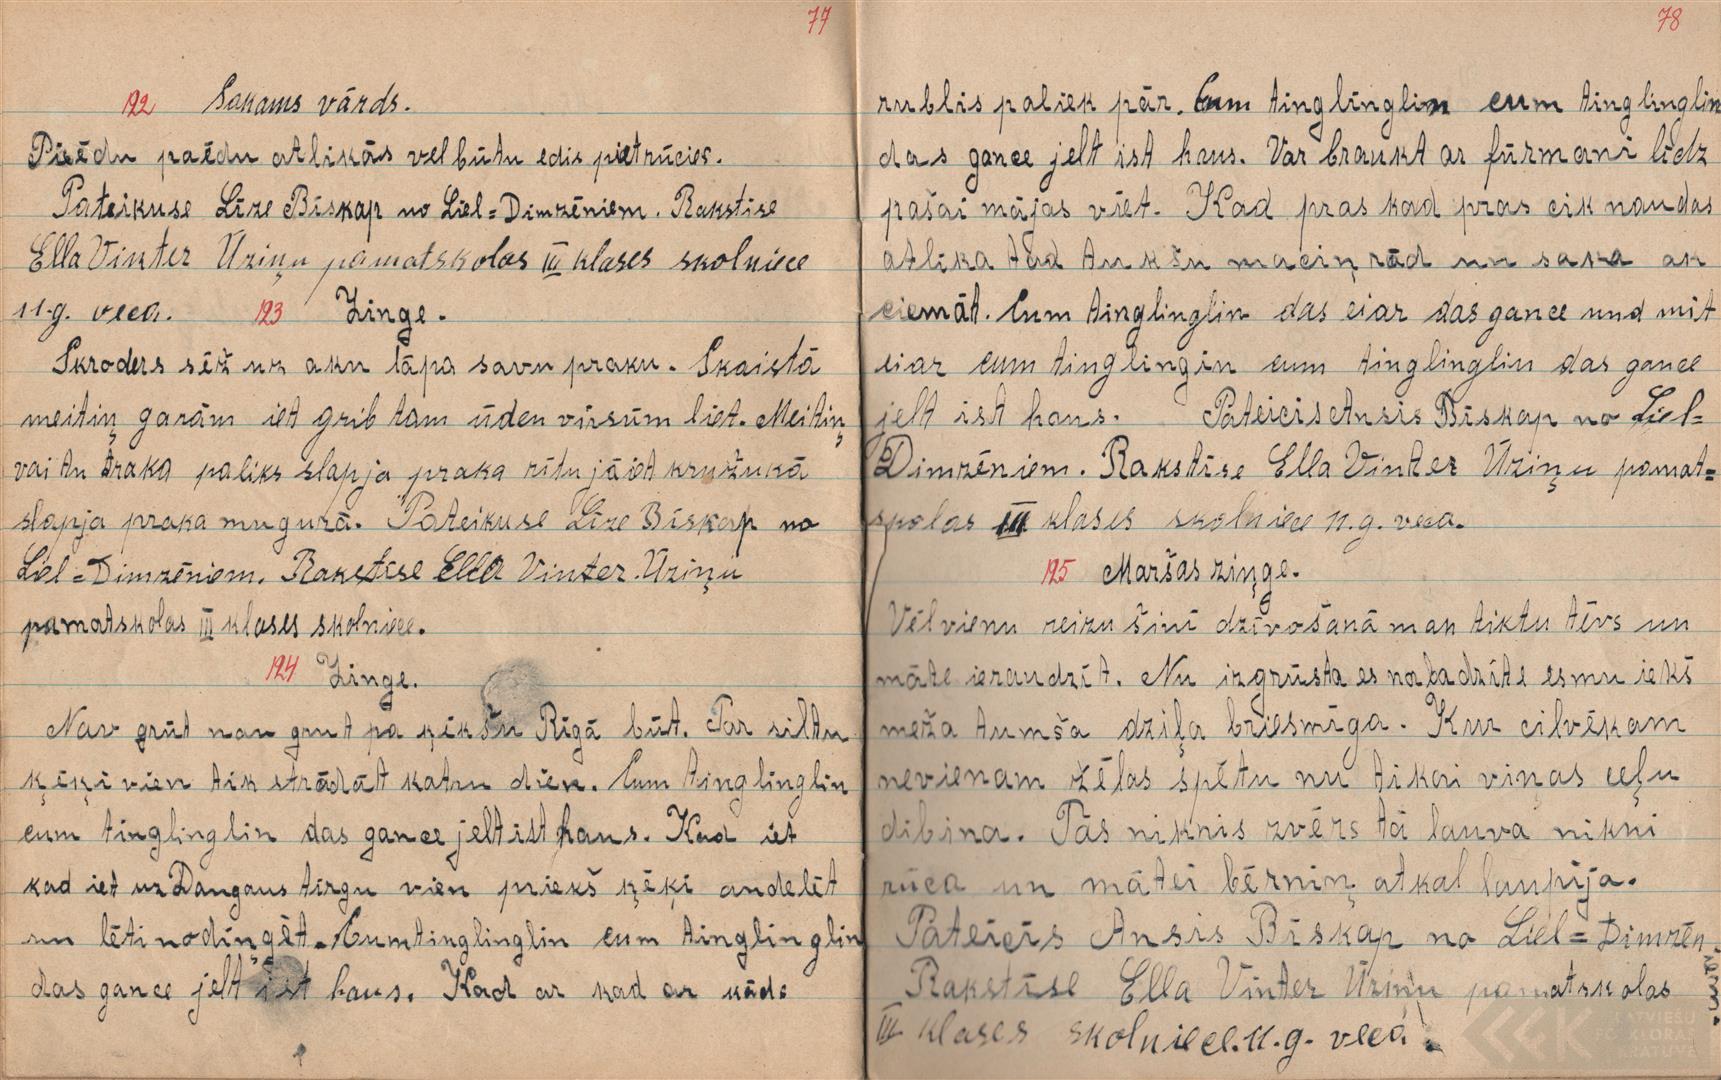 77
192 Sakams vārds.
Pieēdu paēdu atlikās vel būtu edis pietrūcies.
Pateikuse Līze Bīskap no Liel=Dimzēniem. Rakstīse
Ella Vinter Ūziņu pamatskolas III klases skolniece
11.g. veca. 193 Zinge.
Skroders sēž uz aku lāpa savu praku. Skaistā
meitiņ garām iet grib tam ūden virsūm liet. Meitiņ,
vai tu traka paliks slapja praka rītu jāiet kružukā
slapja praka mugurā. Pateikuse Līze Bīskap no
Liel=Dimzēniem. Rakstīse Ella Vinter. Ūziņu
pamatskolas III klases skolniece.
194 Zinge.
Nav grūt nau grut pa ķēkšu Rīgā būt. Par siltu
ķēķi vien tik strādāt katru dien. Cum tinglinglin
cum tinglinglin das gance jelt ist haus. Kad iet
kad iet uz Daugaus tirgu vien priekš ķēķi andelēt
un lēti nodingēt. Cumtinglinglin cum tinglinglin
das gance jelt ist haus. Kad ar kad ar kāds
78
rublis paliek pār. Cum tinglinglin cum tinglinglin
das gance jelt ist haus. Var braukt ar fūrmani līdz
pašai mājas viet. Kad pras kad pras cik naudas
atlika tad tukšu maciņ rād un saka ak
ciemāt. Cum tinglinglin das eiar das gance und mit
eiar cum tinglingin cum tinglinglin das gance
jelt ist haus. Pateicis Ansis Bīskap no Liel=
Dimzēniem. Rakstīse Ella Vinter Ūziņu pamat=
skolas III klases skolniece 11.g. veca.
195 Maršas ziņge.
Vēl vienu reizu šinī dzīvošanā man tiktu tēvs un
māte ieraudzīt. Nu izgrūsta es nabadzīte esmu iekš
meža tumša dziļa briesmīga. Kur cilvēkam
nevienam žēlas spētu nu tikai viņas ceļu
dibina. Tas niknis zvērs tā lauva nikni
rūca un mātei bērniņ atkal laupīja.
Pateicis Ansis Bīskap no Liel=Dimzēn
iem.
Rakstīse Ella Vinter Ūziņu pamatskolas
III klases skolniece. 11.g. veca.
LATVIEŠU
FOLKLORAS
KRĀTUVE